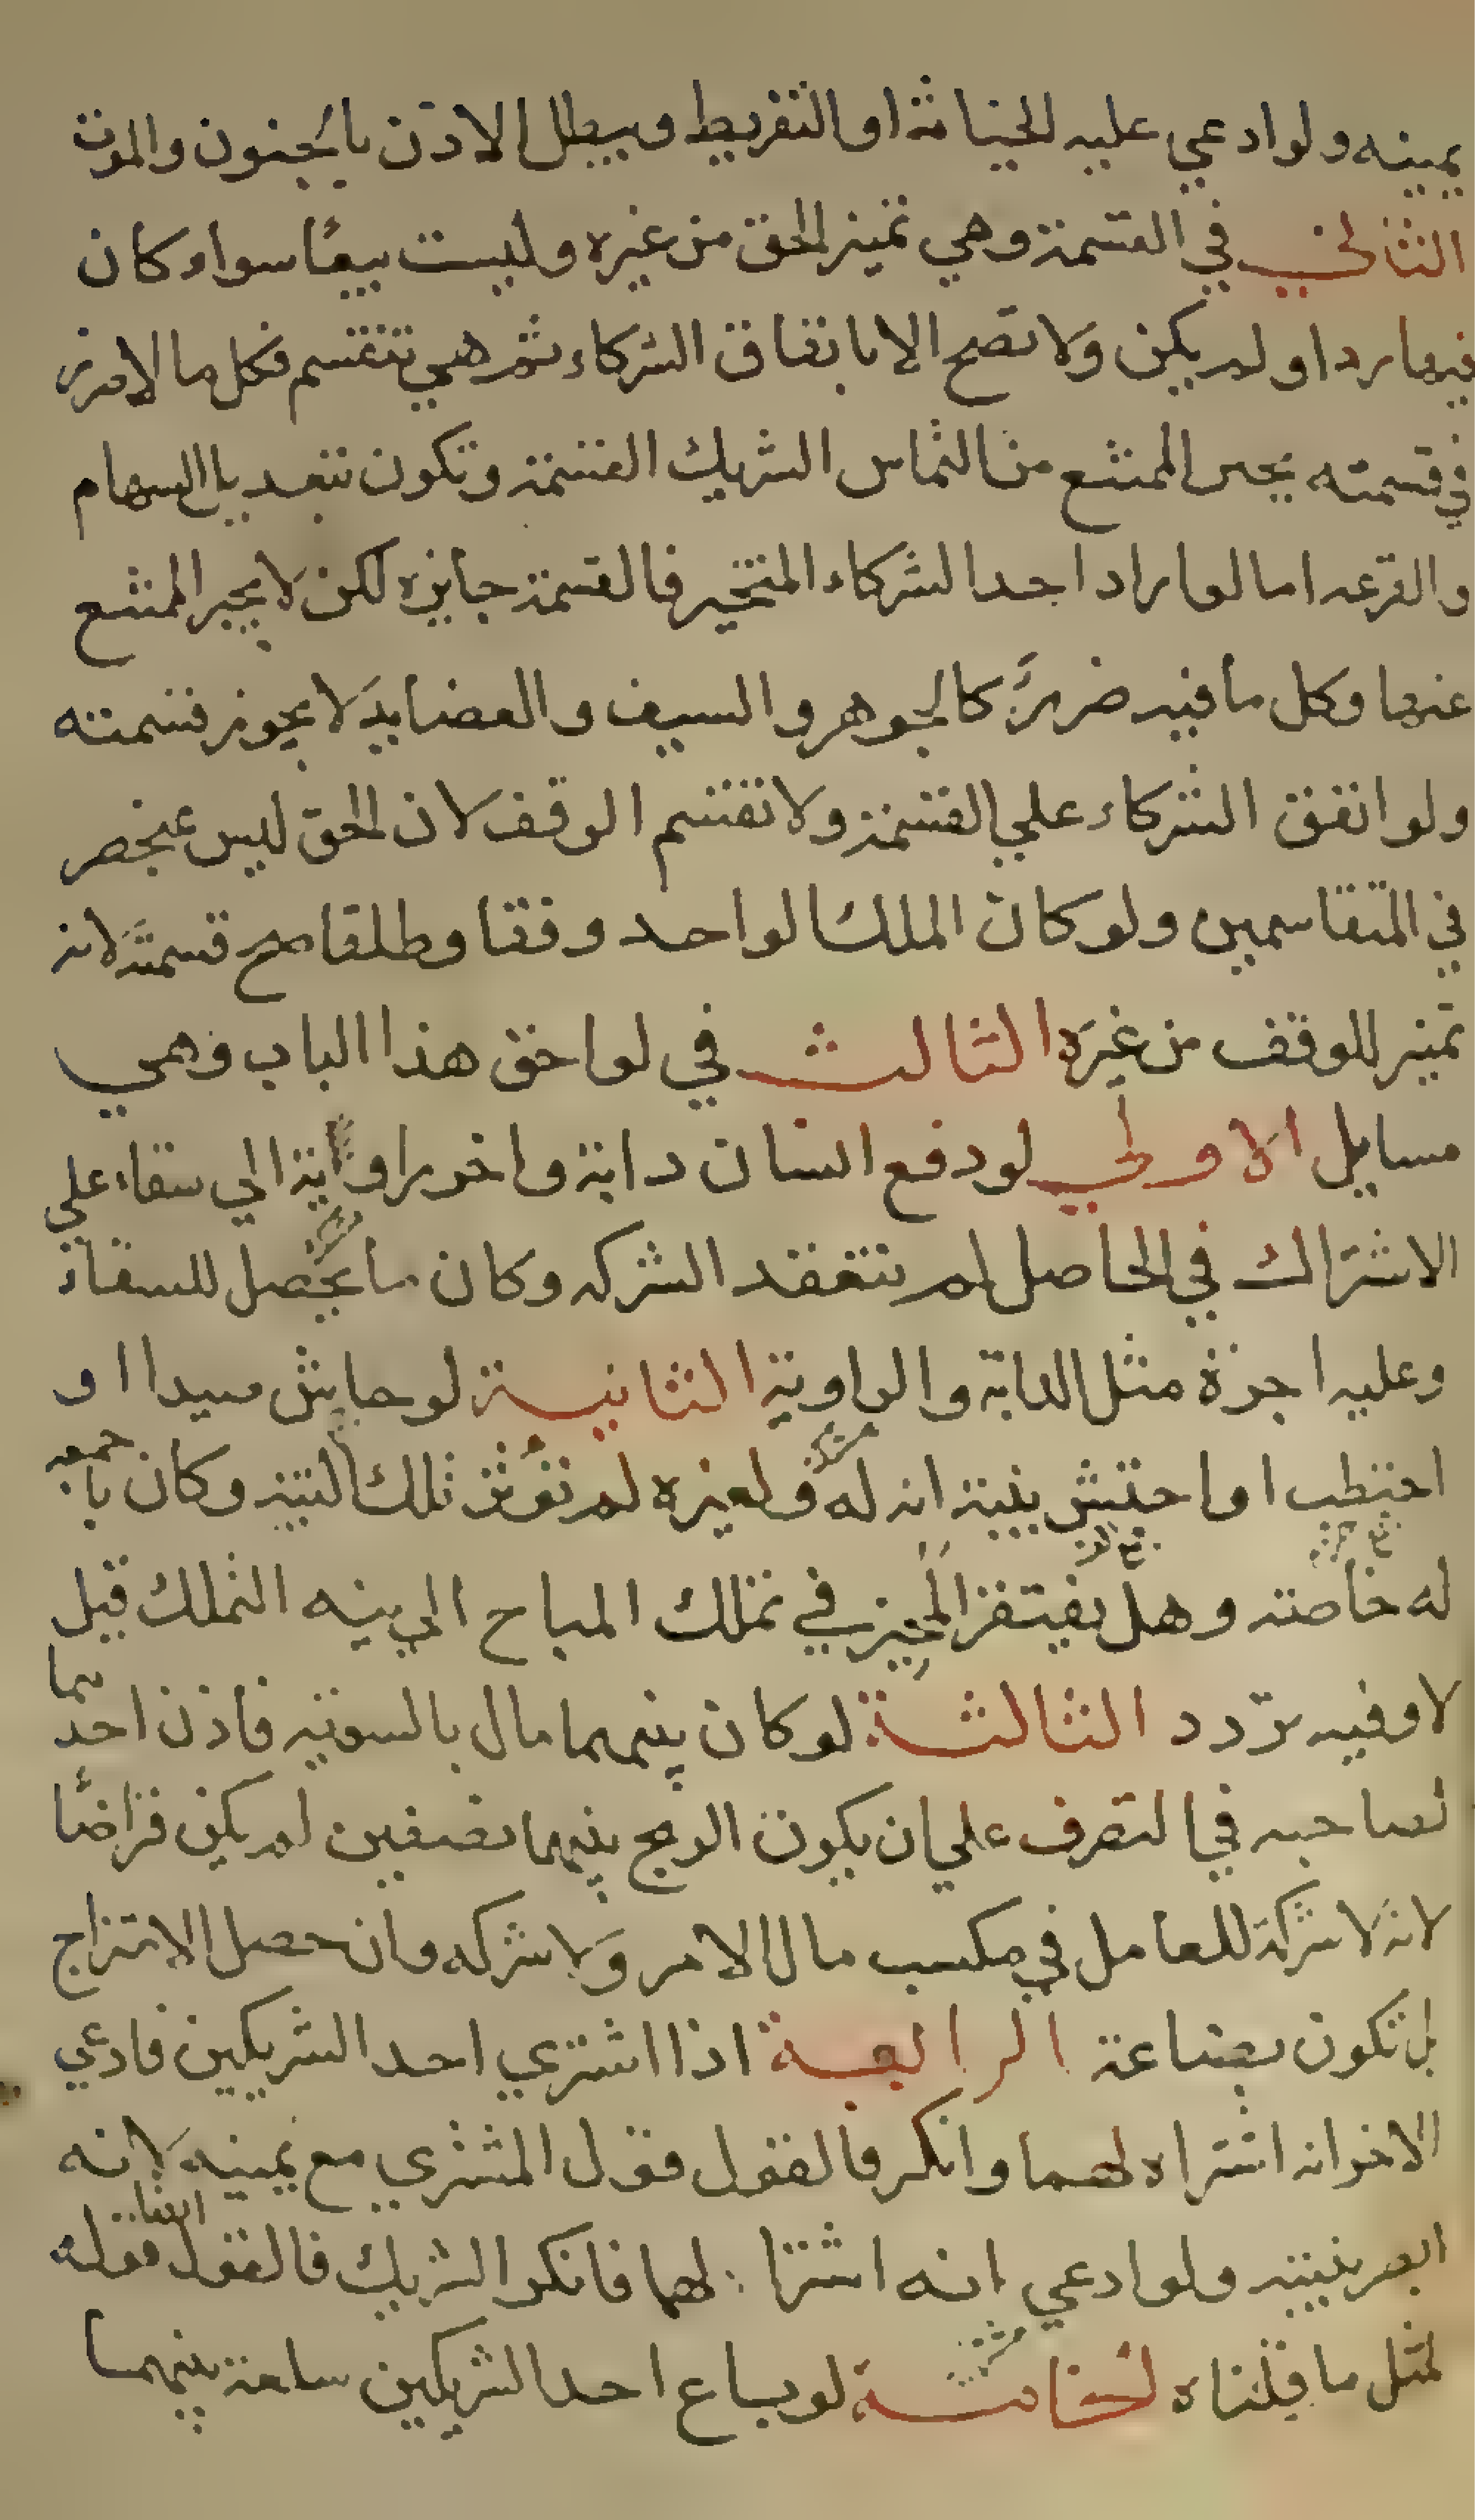 يمينه ولو ادعي عليه الخيانة او التفريط ويبطل الاذن بالجنون والموت
الثاني في القسمة وهي تميز الحق من غيره وليست بيعا سواء كان
فيها رد او لم يكن ولا تصح الا باتفاق الشركاء ثم هي تنقسم فكل ما لا ضرر
في قسمته يجبر الممتنع من التماس الشريك القسمة وتكون بتعديل السهام
والقرعه اما لو اراد احد الشركاء التخير فالقسمة جايزه لكن لا يجبر الممتنع
عنها وكل ما فيه ضرر كالجوهر والسيف والعضايد لا يجوز قسمته
ولو اتفق الشركاء علي القسمة ولا تقسم الوقف لان الحق ليس بمنحصر
في المتقاسمين ولو كان الملك الواحد وقفا وطلقا صح قسمته لانه
تميز للوقف من غيره الثالث في لواحق هذا الباب وهي
مسايل الاولي لو دفع انسان دابة واخر راوية الي سقاء علي
الاشتراك في الحاصل لم تنعقد الشركه وكان ما يحصل للسقاء
وعليه اجرة مثل الدابة والراوية الثانية لو حاش صيدا او
احتطب او احتش بنية انه له ولغيره لم تؤثر تلك النية وكان باجمعه
له خاصة وهل يفتقر المحيز في تملك المباح الي نيه التملك قيل
لا وفيه تردد الثالثة لو كان بينهما مال بالسوية فاذن احدهما
لصاحبه في التصرف علي ان يكون الربح بينهما نصفين لم يكن قراضا
لانه لا شركة للعامل في مكسب مال الامر ولا شركه وان حصل الامتزاج
بل تكون بضاعة الرابعة اذا اشتري احد الشريكين فادعي
الاخر انه اشتراه لهما وانكر فالقول قول المشتري مع يمينه لانه
ابصر بنيته ولو ادعي انه اشترا لهما فانكر الشريك فالقول ايضا قوله
لمثل ما قلناه الخامسة لو باع احد الشريكين ساعة بينهما